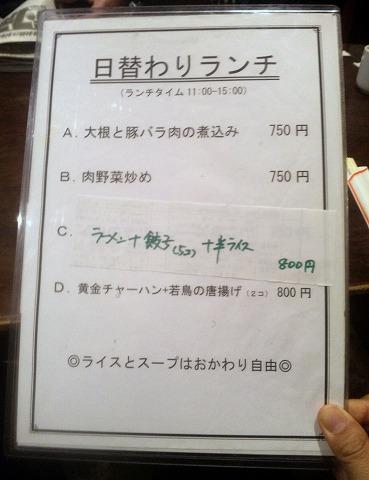 日替わりランチ
(ランチタイム11:00-15:00)
A. 大根と豚バラ肉の煮込み 750円
B. 肉野菜炒め 750円
C. ラーメン+餃子(5コ)+半ライス 800円
D. 黄金チャーハン+若鳥の唐揚げ(2コ) 800円
◎ライスとスープはおかわり自由◎